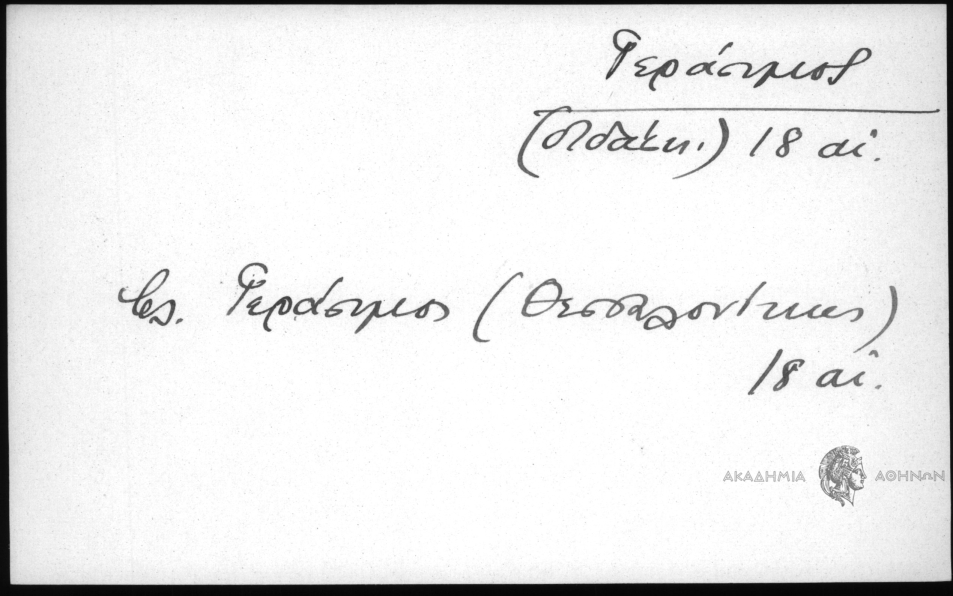 Γεράσιμος
(διδάσκ.) 18 αἰ.
βλ. Γεράσιμος (Θεσσαλονίκης)
18 αἰ.
ΑΚΑΔΗΜΙΑ ΑΘΗΝΩΝ